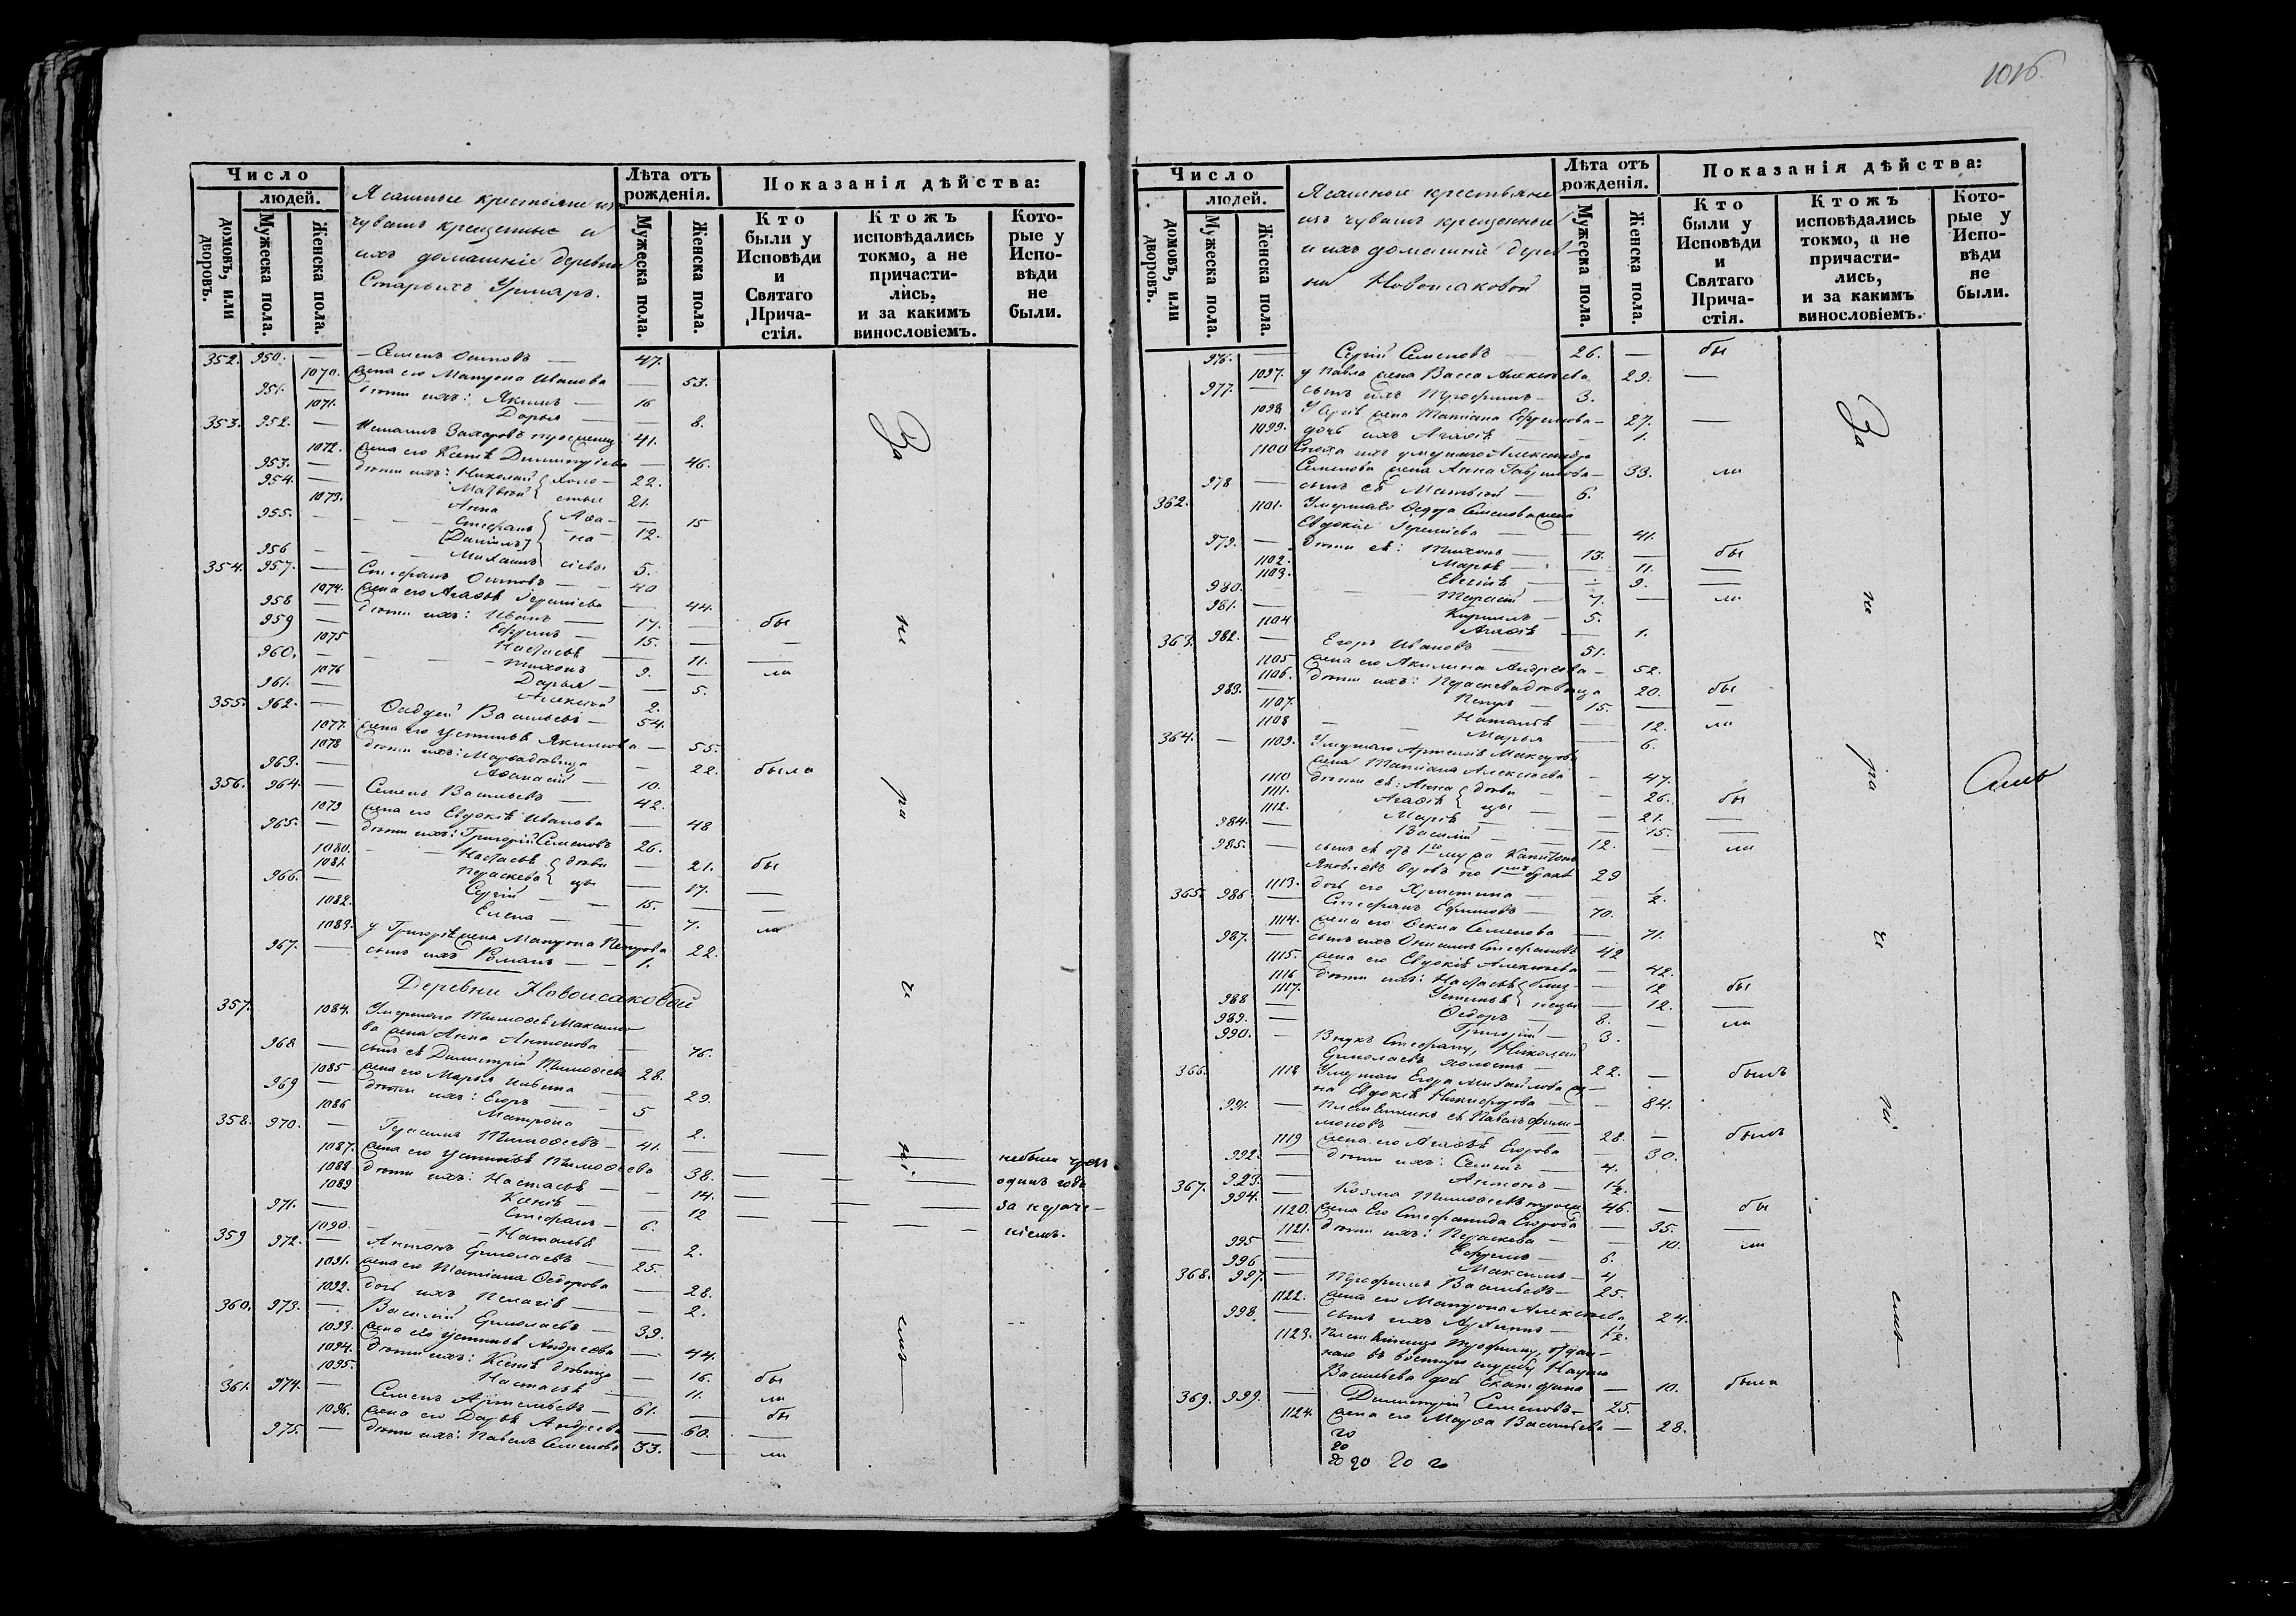 1016.
Число
людей.
домовъ, или дворовъ.
Мужеска пола.
Женска пола.
Ясашные крестьяне изъ
чувашъ крещенные и
ихъ домашніе деревни
Старыхъ Урмаръ.
Лѣта отъ рожденія.
Мужеска пола.
Женска пола.
Показанія дѣйства:
Кто были у Исповѣди и Святаго Причастія.
Ктожъ исповѣдались токмо, а не причастились, и за какимъ винословіемъ.
Которые у Исповѣди не были.
352. 950. — Семенъ Осиповъ — 47.
1070. жена его Матрона Иванова — 53.
951. — дѣти ихъ: Якимъ — 16
1071. Дарья — 8.
353. 952. — Захаровъ 41.
1072. жена его Ксенія Димитріева — 46.
953. — дѣти ихъ: Николай 22.
954. — Матвей 21.
1073. Анна — 15
955. — Стефанъ 12.
[Даніилъ]
956 — Михаилъ 5.
354. 957. — Стефанъ Осиповъ — 40
1074. жена его Агафья — 44.
958 — дѣти ихъ: Иванъ — 17. — бы
959 — Ефремъ — 15. —
1075 Настасья — 11. —
960. — Тихонъ 9. — ли
1076 Дарья — 5.
961. — Алексей 2.
355. 962. — Васильевъ — 54.
1077. жена его Устинья Якимова — 55.
1078 дѣти ихъ: Марья дѣвица — 22. была
963. — Афанасій — 10.
356. 964. — Семенъ Васильевъ — 42.
1079 жена его Евдокія Иванова — 48
965. — дѣти ихъ: Григорій Семеновъ 26.
1080. Настасья дѣви — 21. бы
1081. Параскева цы — 17. —
966. — Сергій — 15. —
1082. Елена — 7. ли
1083. у Григорія жена Матрона Петрова 22.
967. — сынъ ихъ Романъ — 1.
Деревни Новоисаковой
357. 1084. Умершаго Тимофея Максимо-
ва жена Анна Антонова — 76.
968 — сынъ ея Димитрій Тимофеевъ 28.
1085 жена его Марья — 29.
969 — дѣти ихъ: Егоръ — 5
1086 Матрона — 2.
358. 970. — Герасимъ Тимофеевъ — 41. — небыли
1087. жена его Устинья Тимофеева 38. — одинъ годъ
1088 дѣти ихъ: Настасья — 14. — за нераче-
1089 Ксенія — 12 — ніемъ.
971. — Стефанъ — 6.
1090. Наталья — 2.
359 972. — Антонъ Ермолаевъ — 25.
1091. жена его Татіана Федорова — 28.
1092. дочь ихъ Пелагія — 2.
360. 973. — Василій Ермолаевъ — 39.
1093. жена его Устинья Андреева — 44.
1094. дѣти ихъ: Ксенія дѣвица — 16. бы
1095. Настасья — 11. ли
361. 974. — Семенъ Артемьевъ — 61. — бы
1096. жена его Дарья Андреева — 60. —
975. — дѣти ихъ: Павелъ Семеновъ 33. — ли
За не ра че ні емъ
Число
людей.
домовъ, или дворовъ.
Мужеска пола.
Женска пола.
Ясашные крестьяне
изъ чувашъ крещенные
и ихъ домашніе дерев-
ни Новоисаковой
Лѣта отъ рожденія.
Мужеска пола.
Женска пола.
Показанія дѣйства:
Кто были у Исповѣди и Святаго Причастія.
Ктожъ исповѣдались токмо, а не причастились, и за какимъ винословіемъ.
Которые у Исповѣди не были.
976. — Сергій Семеновъ 26. — бы
1097. у Павла жена Васса Алексеева 29. —
977. — сынъ ихъ Трофимъ — 3.
1098 У Сергія жена Татіана Ефремова — 27. —
1099. дочь ихъ Агафія 1.
1100 Сноха ихъ умершаго Александра
Семенова жена Анна Гаврилова — 33. ли
978 — сынъ ея Матвей — 6.
362. 1101. Умершаго Федора Семенова жена
Евдокія — 41.
979. — дѣти ея: Тихонъ — 13. — бы
1102. Марья — 11. —
1103. Евгенія — 9. —
980. — Тарасій — 7. — ли
981. — Кирилъ — 5.
1104 Агафія — 1.
363. 982. — Егоръ Ивановъ — 51.
1105 жена его Акилина Андреева — 52.
1106. дѣти ихъ: Параскева дѣвица 20. бы
983. — Петръ — 15. — —
1107. Наталья — 12. ли
1108 Марья — 6.
364. — 1109. Умершаго Артемія Максимова
жена Татіана Алексеева — 47.
1110 дѣти ея: Анна дѣви — 26. бы
1111. Агафія цы — 21. —
1112. Марія — 15. —
984. — Василій — 12. — ли
985. — сынъ ея отъ 1го мужа Капитонъ
Яковлевъ вдовъ по 1мъ бракѣ 29
1113. дочь его Христина — ½.
365. 986. — Стефанъ Ефимовъ — 70.
1114. жена его Фекла Семенова — 71.
987. — сынъ ихъ Стефановъ 42
1115. жена его Евдокія Алексеева — 42.
1116 дѣти ихъ: Настасья близ- 12 бы
1117. Устинья нецы — 12. —
988 — Федоръ — 8. — ли
989. — Григорій — 3.
990. — Внукъ Стефану, Николай
Ермолаевъ холостъ — 22. — былъ
366. 1118 Умершаго Егора Михайлова же-
на Евдокія Никифорова — 84.
991. — Племянникъ ея Павелъ Фили-
моновъ — 28. — былъ
1119 жена его Агафья Егорова — 30.
992. — дѣти ихъ: Семенъ — 4.
993. — Антонъ — 1½.
367. 994. — Козма Тимофеевъ 46. — бы
1120. жена его Стефанида Егорова — 35. —
1121. дѣти ихъ: Параскева — 10. ли
995 — Ефремъ — 6.
996 — Максимъ — 4
368. 997. — Трофимъ Васильевъ — 25.
1122. жена его Матрона Алексеева 24.
998. — сынъ ихъ Архипъ — 1½.
1123. Племянница Трофиму, отдан-
наго въ военную службу Наума
Васильева дочь Екатерина — 10. была
369. 999. — Димитрій Семеновъ — 25
1124. жена его Марфа Васильева — 28.
20
20
20 20 20 20
За не ра че ні емъ